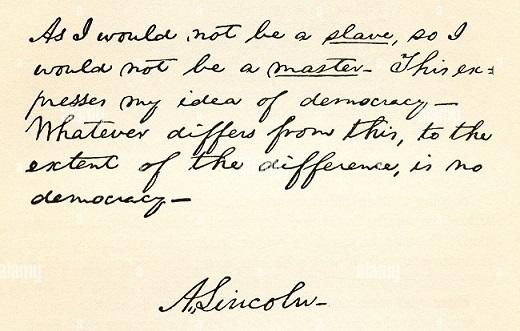 As I would not be a slave, so I
would not be a master— This ex=
presses my idea of democracy—
Whatever differs from this, to the
extent of the difference, is no
democracy—
A. Lincoln—